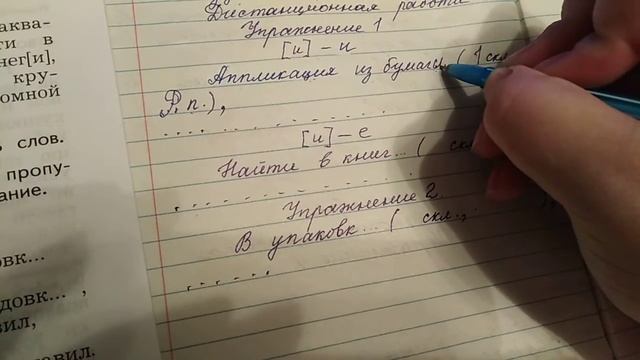 аква-
ти в
нег[и],
кру-
омной
слов.
пропу-
ание.
овк...
довк... ,
вил,
авил.
Дистанционная работа
Упражнение 1
[и] - и
Аппликация из бумаги (1 скл
Р.п.),
[и] - е
Найти в книг... ( скл
Упражнение 2.
В упаковк... ( скл.,